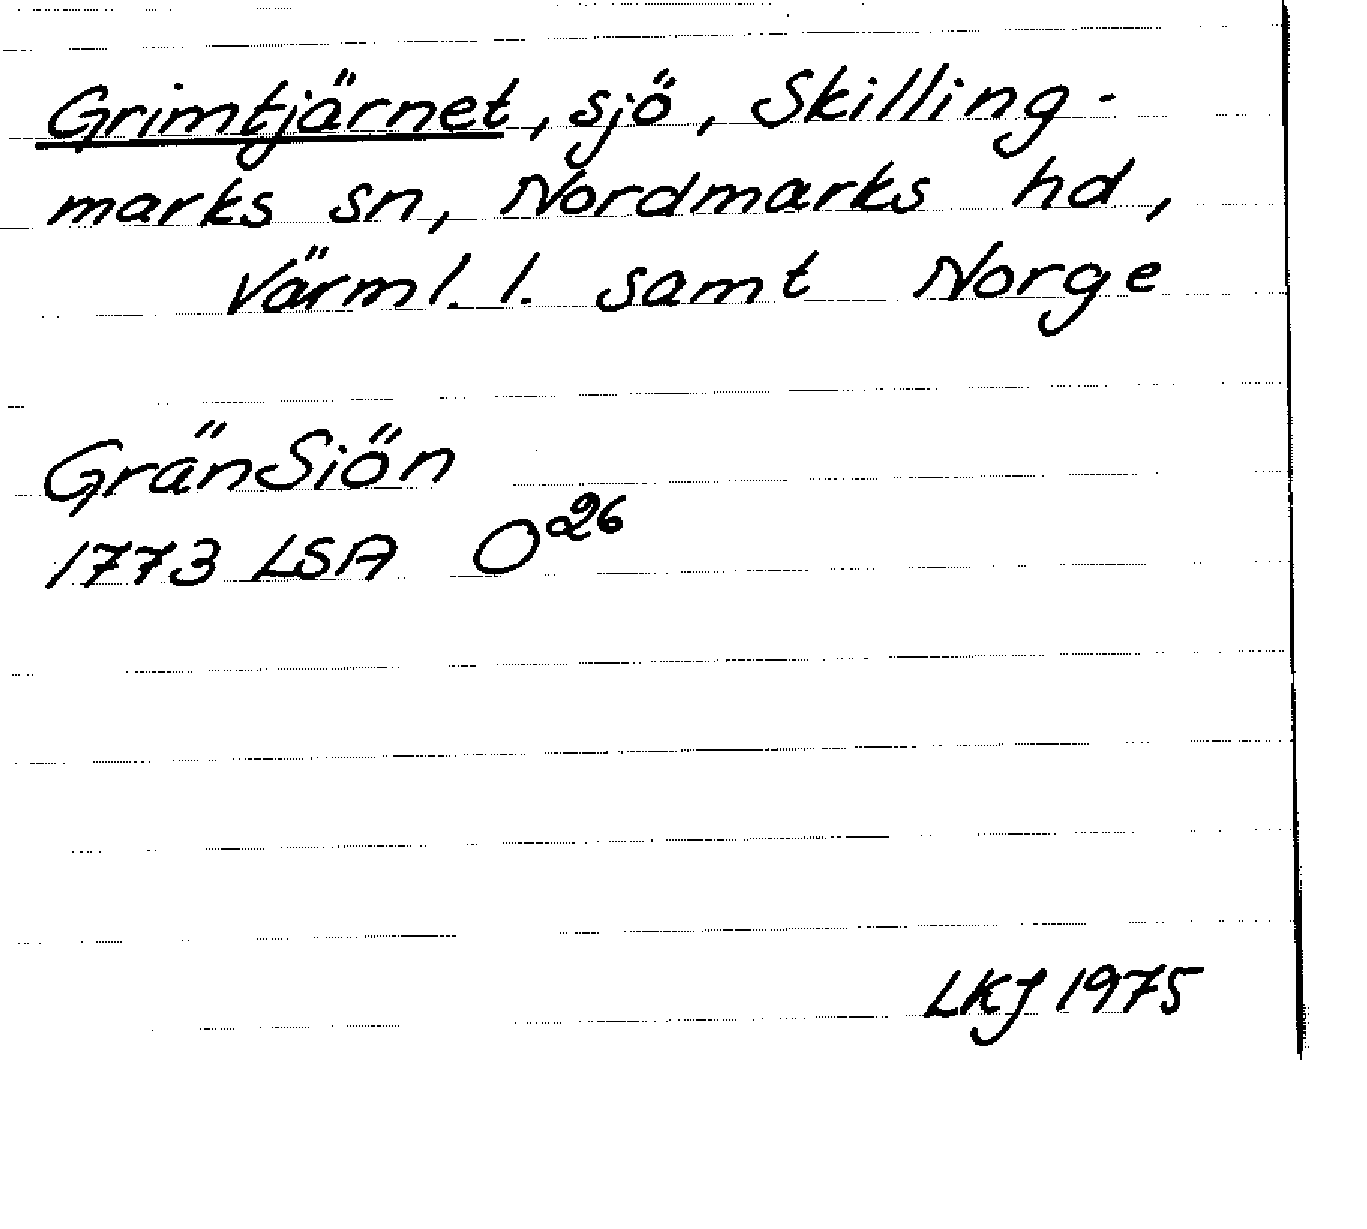 Grimtjärnet, sjö, Skilling-
marks sn, Nordmarks hd,
Värml. l. samt Norge
GränSiön
1773 LSA O²⁶
LKJ 1975